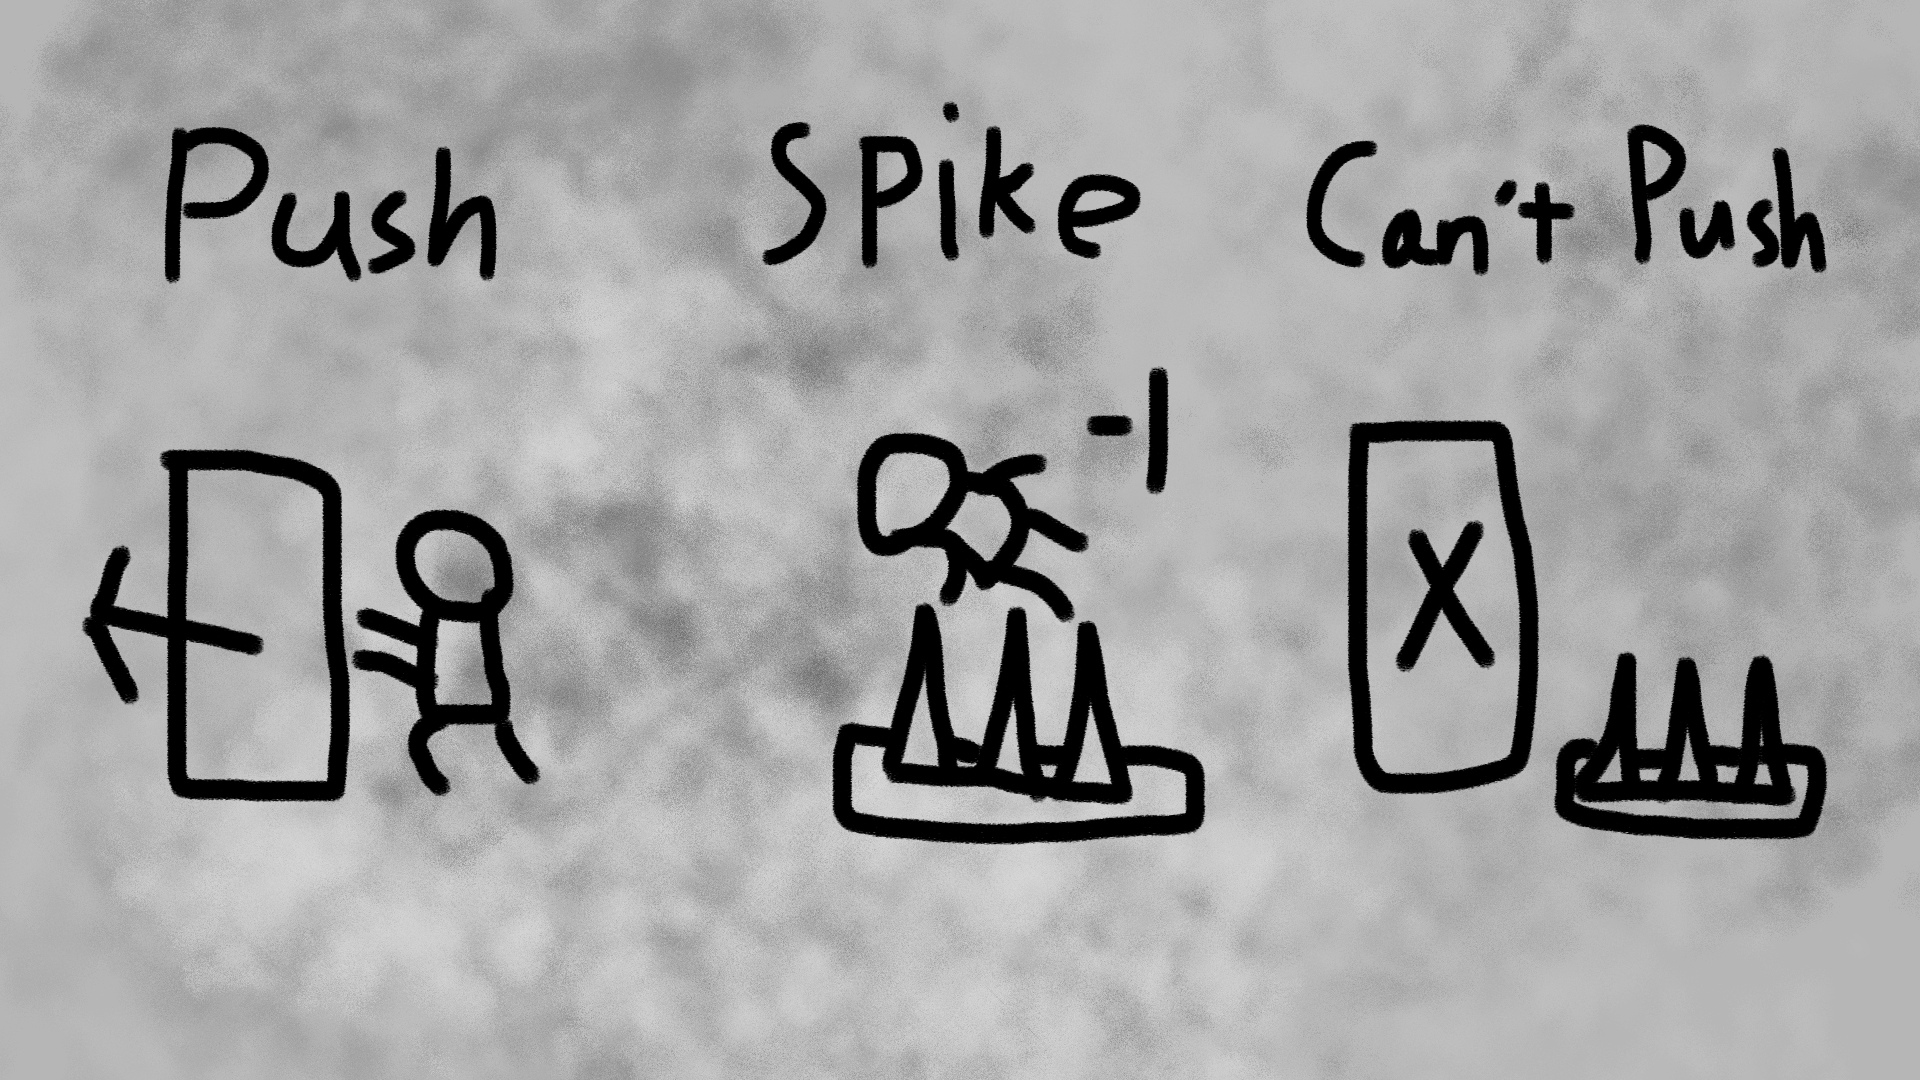 Push
Spike
Can't Push
-1
X